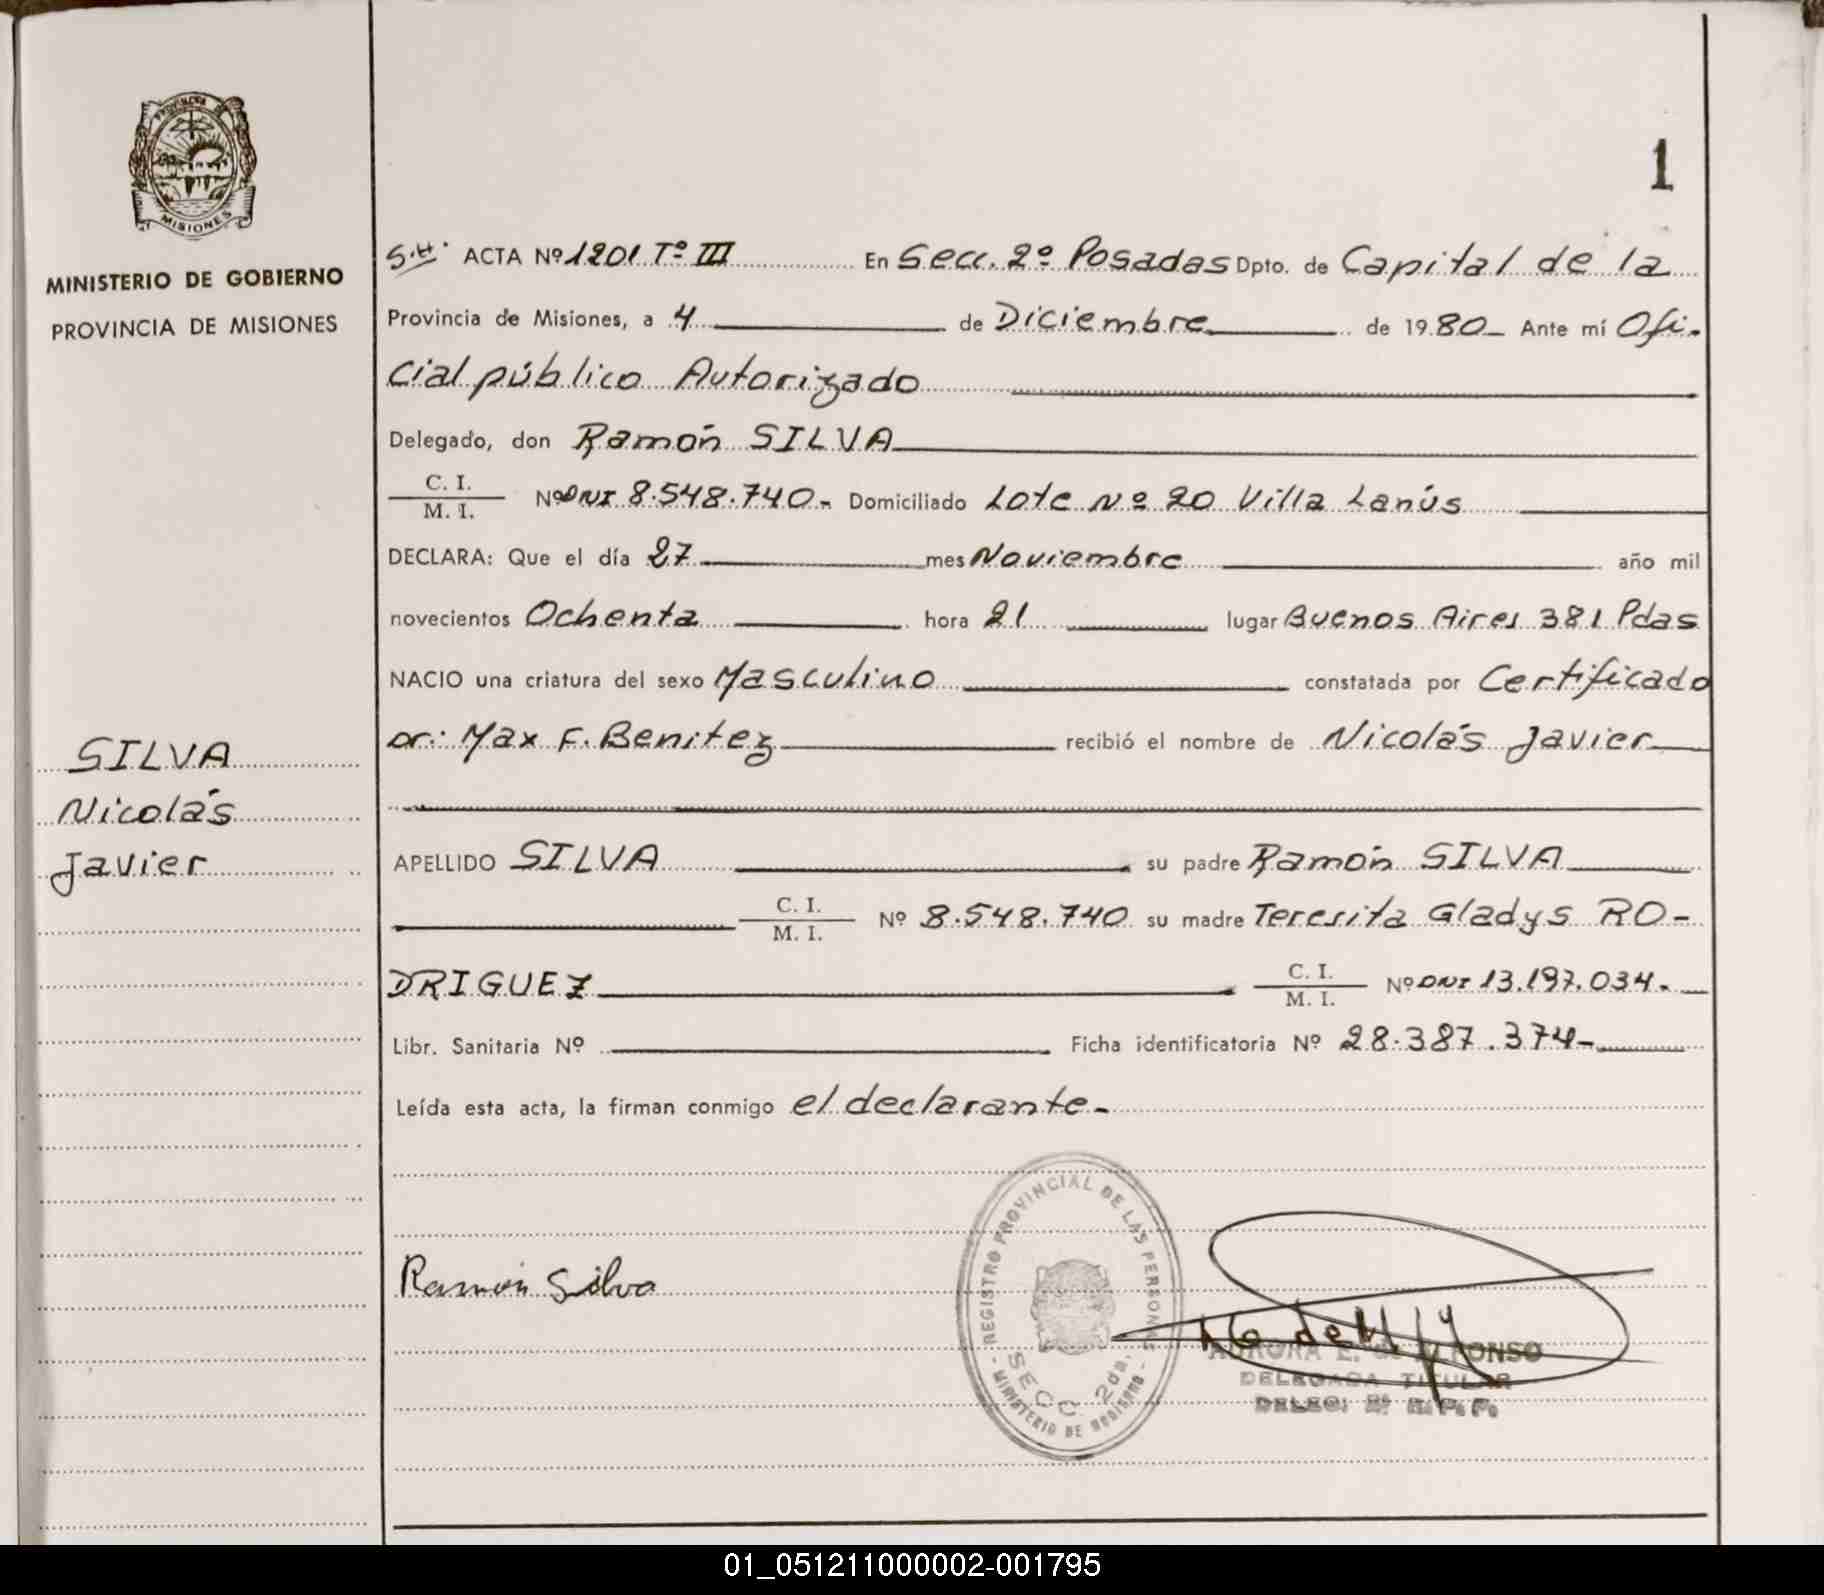 PROVINCIA DE
MISIONES
MINISTERIO DE GOBIERNO
PROVINCIA DE MISIONES
SILVA
Nicolás
Javier
1
S.H. ACTA Nº 1201 Tº III En Secc. 2º Posadas Dpto. de Capital de la
Provincia de Misiones, a 4 de Diciembre de 1980 Ante mí Ofi-
cial público Autorizado
Delegado, don Ramón SILVA
C. I.
M. I.
Nº DNI 8.548.740- Domiciliado Lote Nº 20 Villa Lanús
DECLARA: Que el día 27 mes Noviembre año mil
novecientos Ochenta hora 21 lugar Buenos Aires 381 Pdas
NACIO una criatura del sexo Masculino constatada por Certificado
Dr: Max F. Benitez recibió el nombre de Nicolás Javier
APELLIDO SILVA su padre Ramón SILVA
C. I.
M. I.
Nº 8.548.740 su madre Teresita Gladys RO-
DRIGUEZ
C. I.
M. I.
Nº DNI 13.197.034.-
Libr. Sanitaria Nº Ficha identificatoria Nº 28.387.374-
Leída esta acta, la firman conmigo el declarante-
Ramón Silva
REGISTRO PROVINCIAL DE LAS PERSONAS
SECC. 2da.
- MINISTERIO DE GOBIERNO -
AURORA E. de
DELEGADA TITULAR
01_051211000002-001795